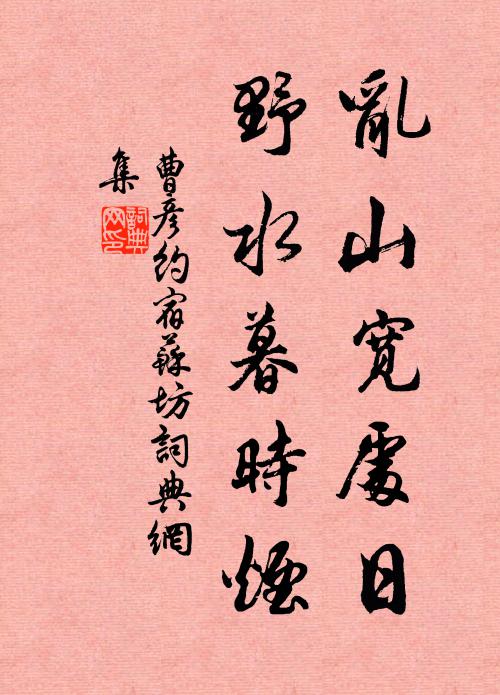 亂山寬處日
野水暮時煙
曹彥約宿蘇坊詞典網
集
詞典
网印